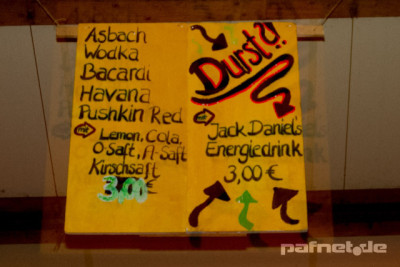 Asbach
Wodka
Bacardi
Havana
Pushkin Red
mit
Lemon, Cola,
O-Saft, A-Saft
Kirschsaft
3,00 €
Durst?!
mit
Jack Daniel's
Energiedrink
3,00 €
pafnet.de